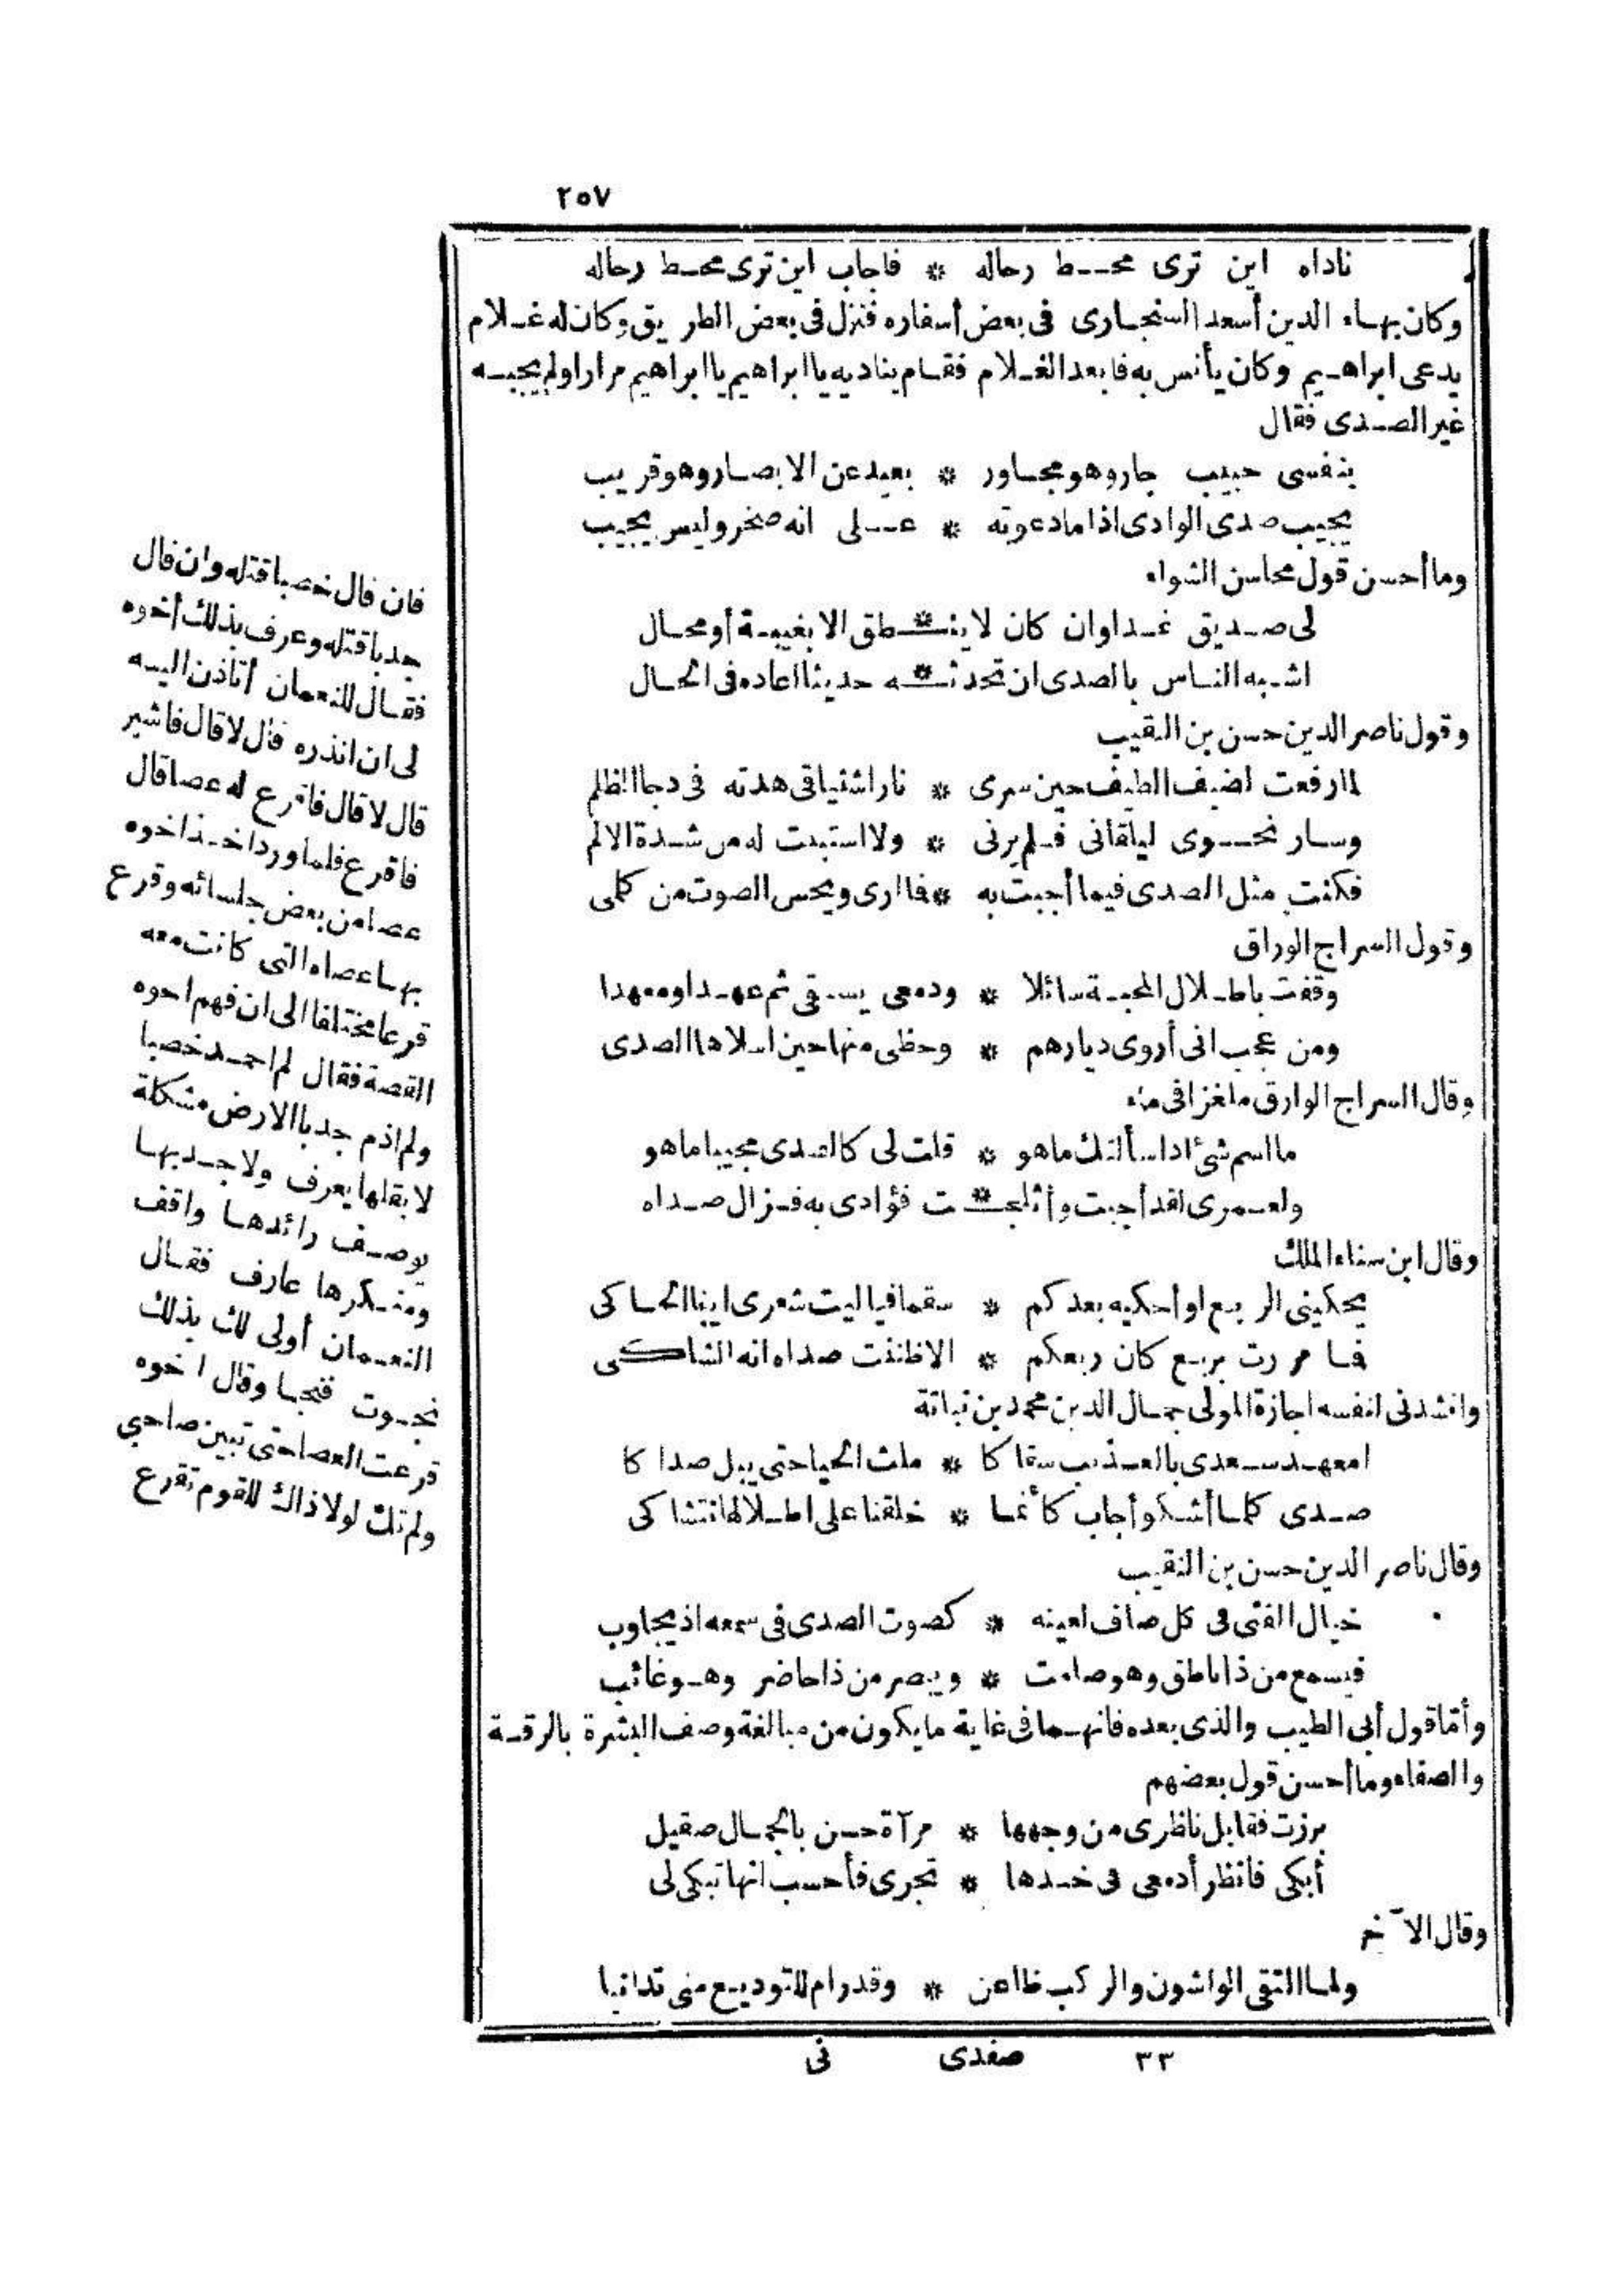 ٢٥٧
ناداه اين ترى محط رحاله * فاجاب اين ترى محط رحاله
وكان بهاء الدين أسعد السنجارى فى بعض أسفاره فنزل فى بعض الطريق وكان له غلام
يدعى ابراهيم وكان يأنس به فابعد الغلام فقام يناديه يا ابراهيم يا ابراهيم مرارا ولم يجيبه
غير الصدى فقال
بنفسى حبيب جار وهو مجاور * بعيد عن الابصار وهو قريب
يجيب صدى الوادى اذا ما دعوته * على انه صخر وليس يجيب
وما أحسن قول محاسن الشواء
لى صديق غدا وان كان لا ينـ * ـطق الا بغيبة أو محال
اشبه الناس بالصدى ان تحدثـ * ـه حديثا اعاده فى الحال
وقول ناصر الدين حسن بن النقيب
لما رفعت لضيف الطيف حين سرى * نار اشتياقى هدته فى دجا الظلم
وسار نحوى ليلقانى فلم يرنى * ولا استبنت له من شدة الالم
فكنت مثل الصدى فيما أجبت به * فما ارى ويحس الصوت من كلمى
وقول السراج الوراق
وقفت باطلال المحبة سائلا * ودمعى يسقى ثم عهدا ومعهدا
ومن عجب انى أروى ديارهم * وحظى منها حين اسلاها الصدى
وقال السراج الوارق ملغزا فى ماء
ما اسم شئ اذا سألتك ماهو * قلت لى كالصدى مجيبا ماهو
ولعمرى لقد أجبت وأثلجـ * ـت فؤادى به فزال صداه
وقال ابن سناء الملك
يحكينى الربع او أحكيه بعدكم * سقما فيا ليت شعرى اينا الحاكى
فما مررت بربع كان ربعكم * الا ظننت صداه انه الشاكى
وانشدنى لنفسه اجازة المولى جمال الدين محمد بن نباتة
امعهد سعدى بالعذيب سقاكا * ملث الحيا حتى يبل صداكا
صدى كلما أشكو أجاب كأنما * خلقنا على اطلالها نتشاكى
وقال ناصر الدين حسن بن النقيب
خيال الفتى فى كل صاف لعينه * كصوت الصدى فى سمعه اذ يجاوب
فيسمع من ذا ناطق وهو صامت * ويبصر من ذا حاضر وهو غائب
وأما قول أبى الطيب والذى بعده فانهما فى غاية ما يكون من مبالغة وصف البشرة بالرقة
والصفاء وما أحسن قول بعضهم
برزت فقابل ناظرى من وجهها * مرآة حسن بالجمال صقيل
أبكى فانظر أدمعى فى خدها * تجرى فأحسب انها تبكى لى
وقال الآخر
ولما التقى الواشون والركب ظاعن * وقد رام للتوديع منى تدانيا
٣٣ صفدى نى
فان قال خصبا قتله وان قال
جدبا قتله وعرف بذلك أخوه
فقال للنعمان أتاذن اليه
لى ان انذره قال لا قال فاشير
قال لا قال فاقرع له عصا قال
فاقرع فلما ورد اخذ اخوه
عصا من بعض جلسائه وقرع
بها عصاه التى كانت معه
قرعا مختلفا الى ان فهم اخوه
القصة فقال لم احمد خصبا
ولم اذم جدبا الارض مشكلة
لا بقلها يعرف ولا جدبها
يوصف رائدها واقف
ومنكرها عارف فقال
النعمان أولى لك بذلك
نجوت فنجبا وقال اخوه
قرعت العصا حتى تبين صاحبى
ولم تك لولا ذاك للقوم تقرع